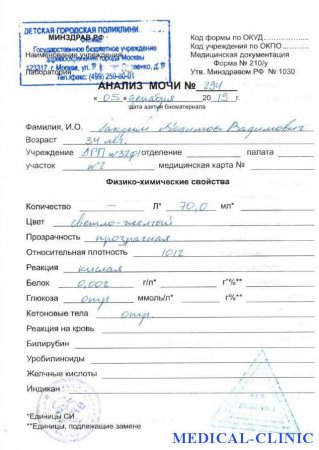 ДЕТСКАЯ ГОРОДСКАЯ ПОЛИКЛИНИ
МИНЗДРАВ РФ
Наименование учреждения
Государственное бюджетное учреждение
здравоохранения города Москвы
Лаборатория
Тел./факс: (499) 259-80-01
Код формы по ОКУД
Код учреждения по ОКПО
Медицинская документация
Форма № 210/у
Утв. Минздравом РФ № 1030
АНАЛИЗ МОЧИ № 294
« 05 » декабря 2019 г.
дата взятия биоматериала
Фамилия, И.О. Вадимович
Возраст 34 лет.
Учреждение отделение палата
участок №2 медицинская карта №
Физико-химические свойства
Количество — Л* 70,0 мл*
Цвет светло-желтый
Прозрачность прозрачная
Относительная плотность 1012
Реакция кислая
Белок 0,002 г/л* г%**
Глюкоза отр ммоль/л* г%**
Кетоновые тела отр.
Реакция на кровь
Билирубин
Уробилиноиды
Желчные кислоты
Индикан
*Единицы СИ
**Единицы, подлежащие замене
MEDICAL-CLINIC